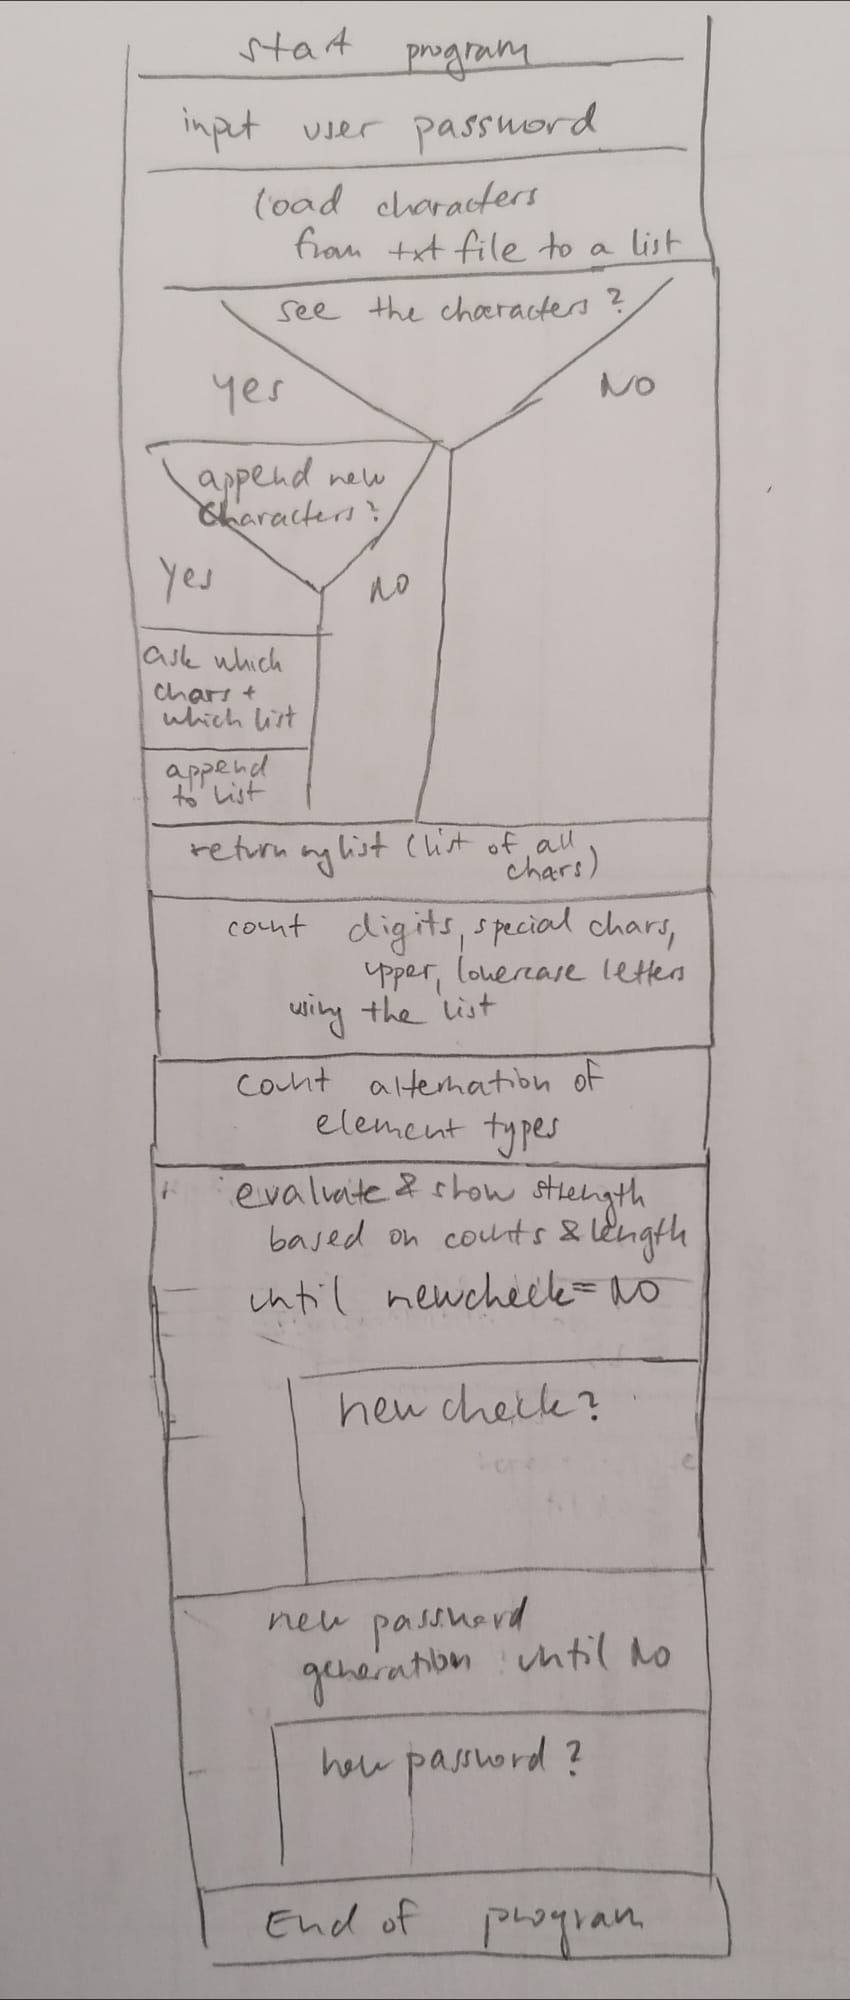 start program
input user password
load characters
from txt file to a list
see the characters ?
yes
NO
append new
characters ?
yes
NO
ask which
chars +
which list
append
to list
return mylist (list of all
chars)
count digits, special chars,
upper, lowercase letters
using the list
count alternation of
element types
evaluate & show strength
based on counts & length
until newcheck = NO
new check ?
new password
generation until NO
new password ?
End of program